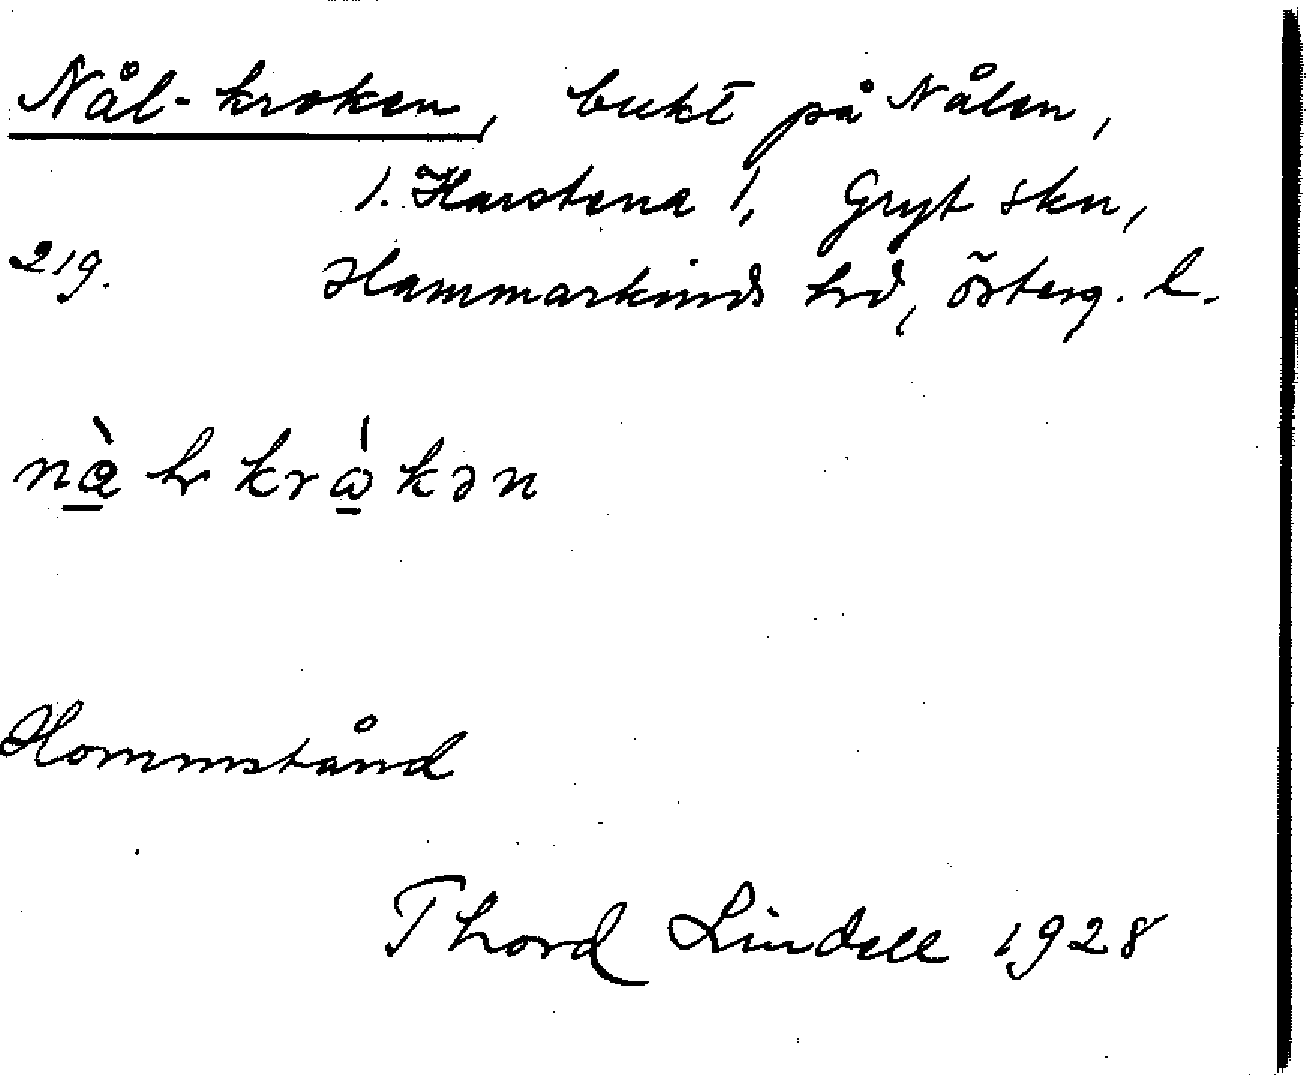 Nål-kroken, bukt på Nålen,
1. Harstena 1, Gryt skn,
219. Hammarkinds hrd, Österg. l.
Hommstånd
Thord Lindell 1928